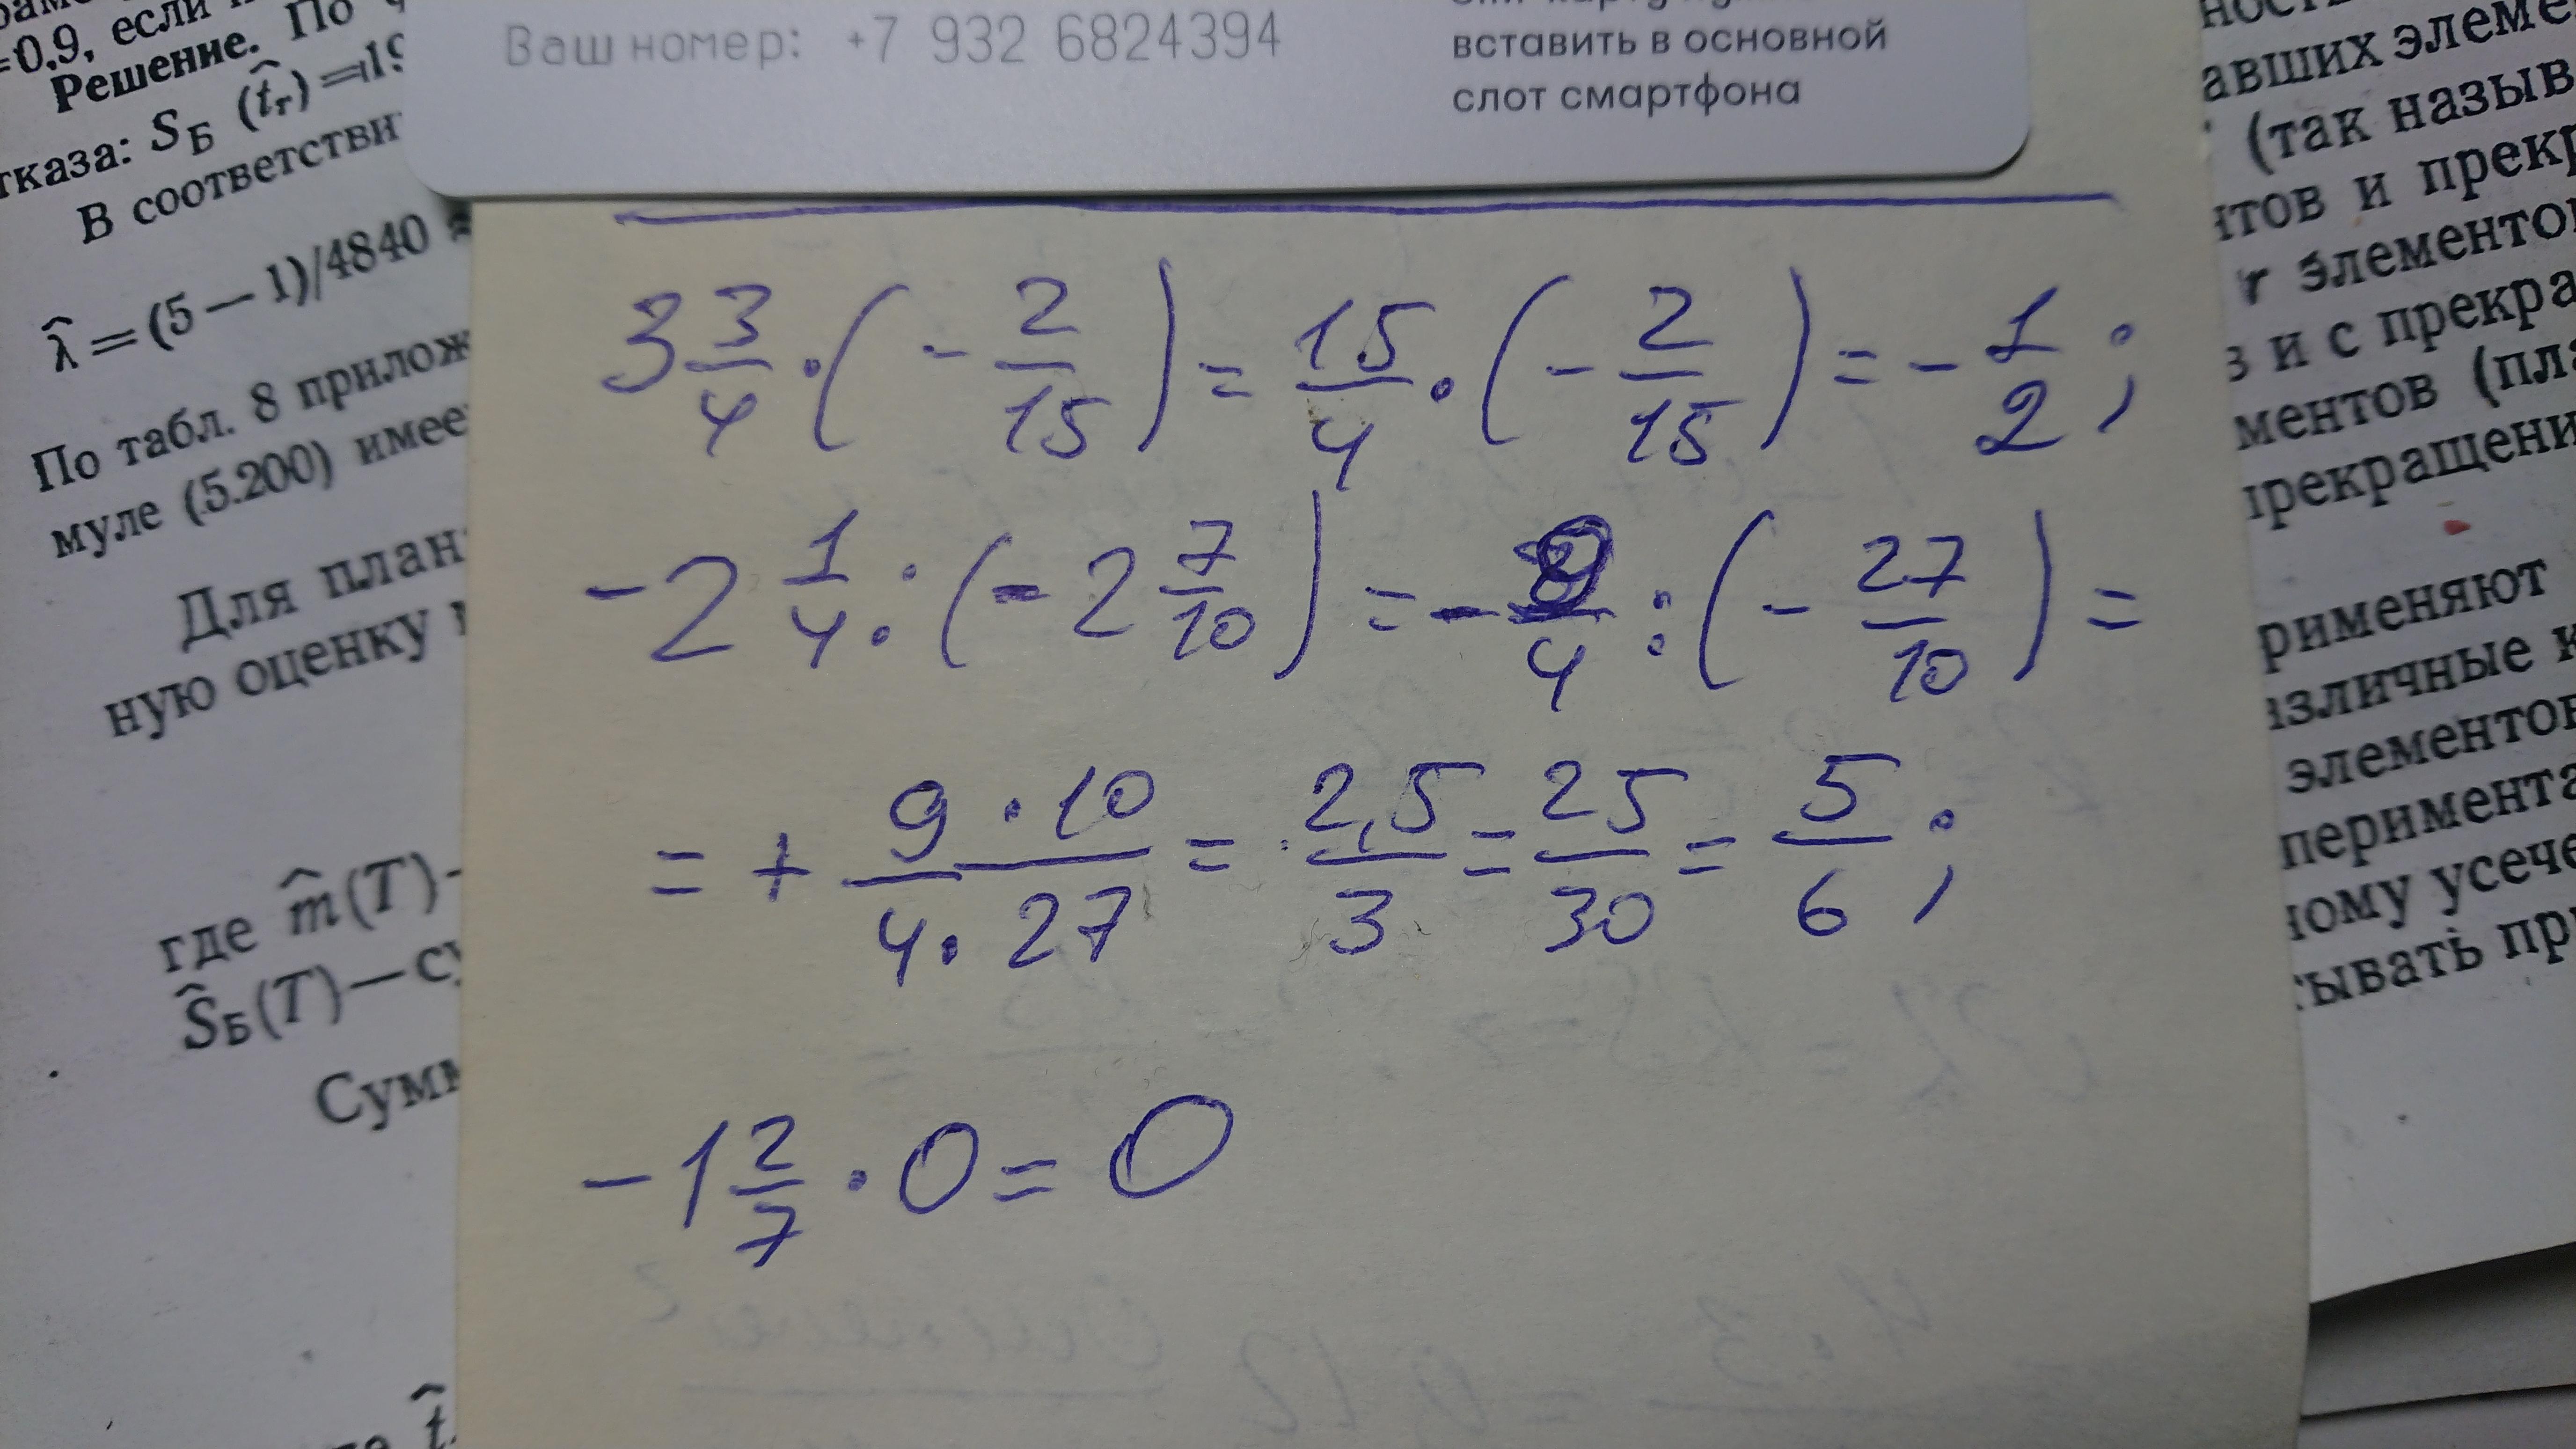 =0,9, если
Решение. По
тказа: S_Б (t̂_r)=19
В соответстви
λ̂=(5—1)/4840 ≈
По табл. 8 прилож
муле (5.200) имее
Для план
ную оценку
где m̂(T)—
Ŝ_Б(T)—су
Сумм
t̂
Ваш номер: +7 932 6824394
вставить в основной
слот смартфона
3 3/4 · (- 2/15) = 15/4 · (- 2/15) = - 1/2 ;
- 2 1/4 : (- 2 7/10) = - 9/4 : (- 27/10) =
= + 9 · 10 / 4 · 27 = 2,5/3 = 25/30 = 5/6 ;
- 1 2/7 · 0 = 0
авших элеме
(так назыв
нтов и прекр
r элементо
з и с прекра
ментов (пла
прекращени
рименяют
азличные к
элементов
перимента
ному усече
тывать пр